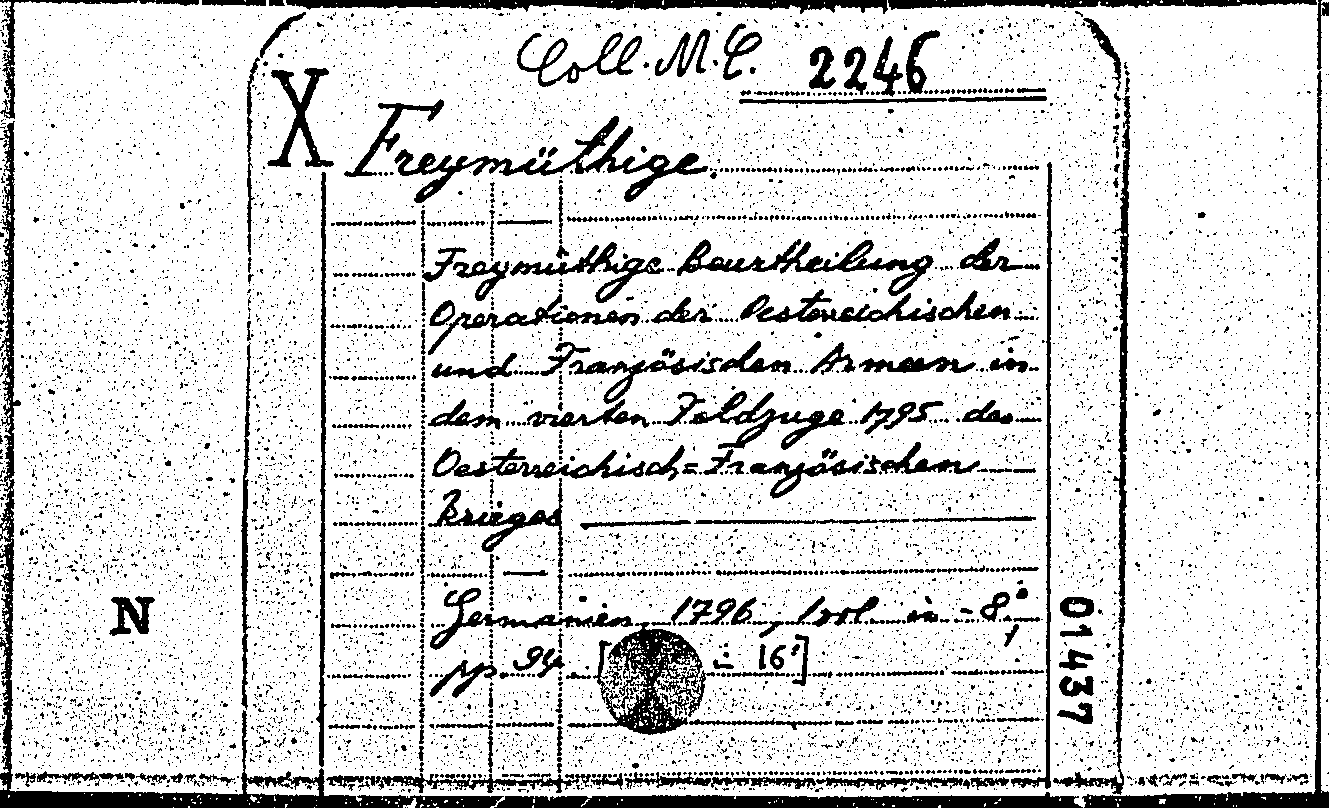 Coll. M.C. 2246
X Freymüthige.
Freymüthige Beurtheilung der
Operationen der Oesterreichischen
und Französischen Armeen in
dem vierten Feldzuge 1795 des
Oesterreichisch=Französischen
Krieges
N
Germanien, 1796, 1 vol. in-8°,
pp. 94. [ in 16°]
01437